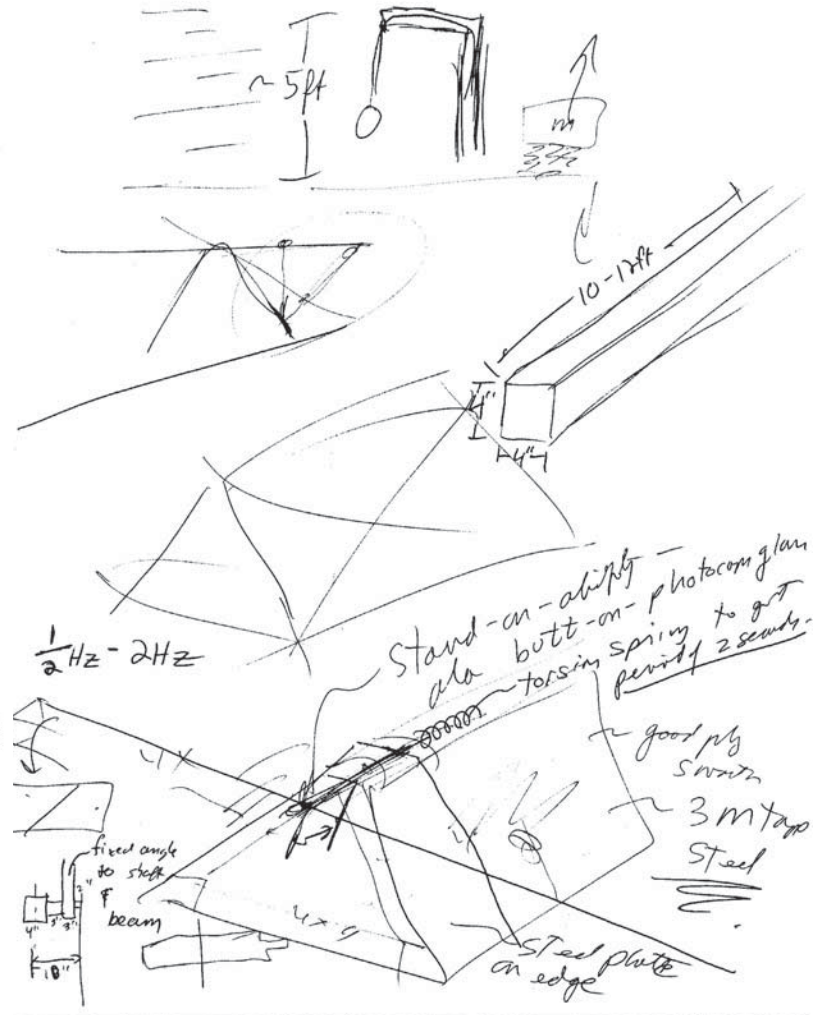 ~ 5ft
m
10-12ft
4"
4"
1/2 Hz - 2Hz
Stand-on-ability -
ala butt-on-photocopy glass
torsion spring to get
period 2 seconds.
~ good ply
smooth
4x
~ 3m tape
Steel
fixed angle
to shaft
&
beam
2"
4" 5" 3"
18"
4x
Steel plate
on edge